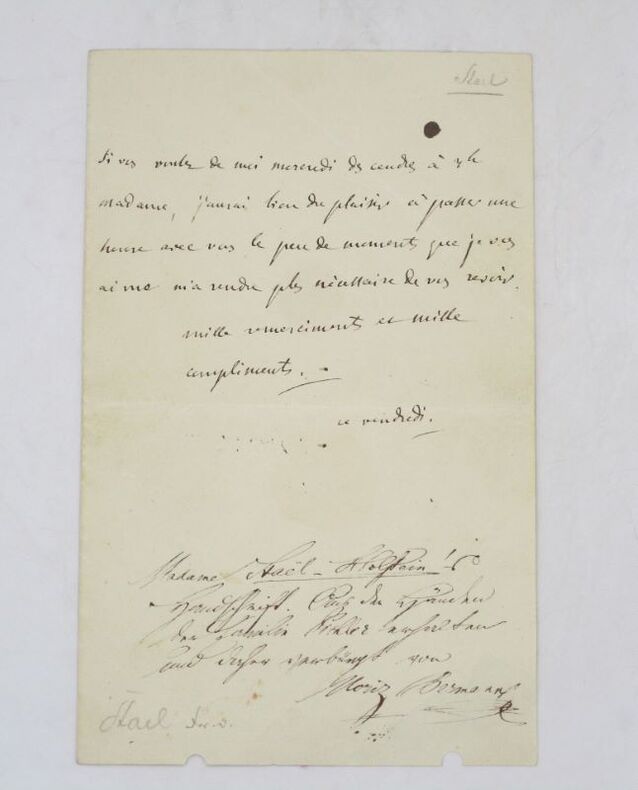 Staël
Si vous voulez de moi mercredi des cendres à 7 h
madame, j'aurai bien du plaisir à passer une
heure avec vous le peu de moments que je vous
ai me m'a rendu plus nécessaire de vous revoir.
mille remerciments et mille
compliments.
ce vendredi.
Madame Staël-Holstein's
Handschrift. Aus den Händen
der Familie Pichler erhalten
und daher verbürgt von
Moriz Bermann
Stael Fr. v.